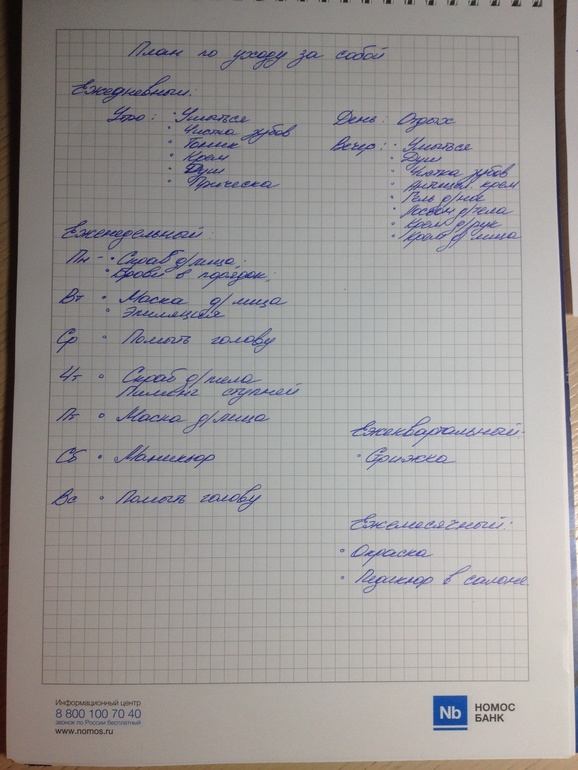 План по уходу за собой
Ежедневный:
Утро: • Умыться
• Чистка зубов
• Тоник
• Крем
• Душ
• Прическа
День: Отдых
Вечер: • Умыться
• Душ
• Чистка зубов
• крем
• Гель д/ног
• Лосьон д/тела
• Крем д/рук
• Крем д/лица
Еженедельный
Пн - • Скраб д/лица;
• Брови в порядок;
Вт • Маска д/лица
• Эпиляция
Ср • Помыть голову
Чт • Скраб д/тела
Пилинг ступней
Пт • Маска д/лица
Сб • Маникюр
Вс • Помыть голову
Ежеквартальный-
• Стрижка
Ежемесячный:
• Окраска
• Педикюр в салоне
Информационный центр
8 800 100 70 40
звонок по России бесплатный
www.nomos.ru
Nb НОМОС
БАНК